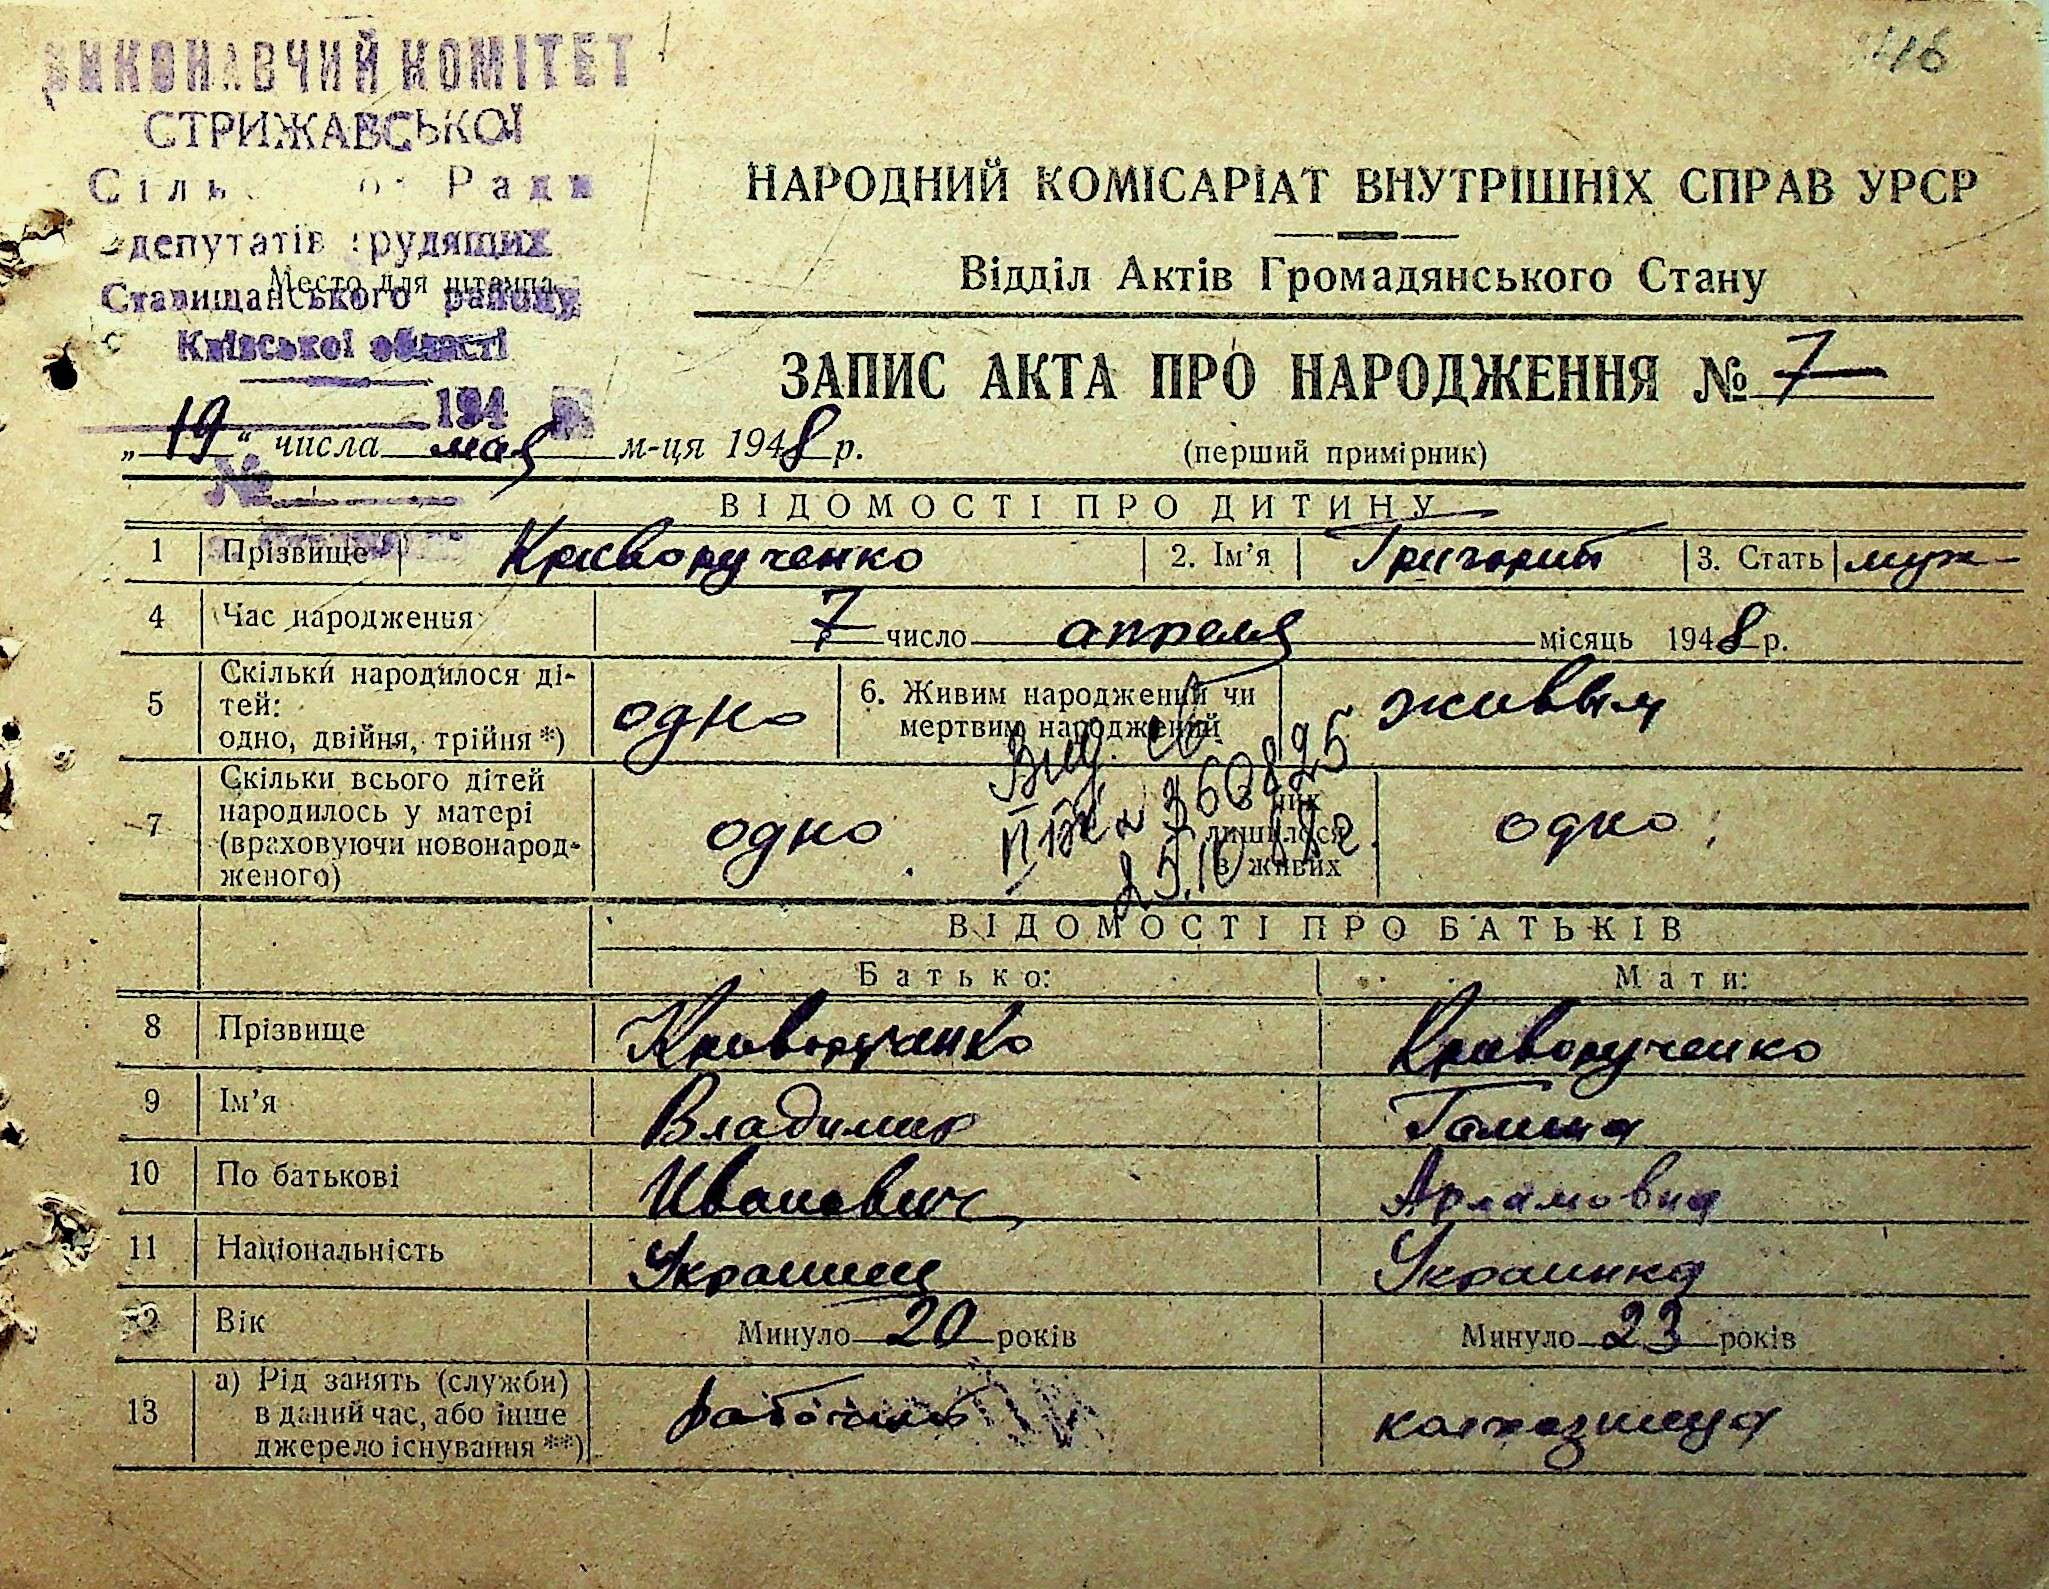 ВИКОНАВЧИЙ КОМІТЕТ
СТРИЖАВСЬКОЇ
Сіль ої Ради
депутатів трудящих
Место для штампа
Ставищанського району
Київської області
194
№
416
НАРОДНИЙ КОМІСАРІАТ ВНУТРІШНІХ СПРАВ УРСР
Відділ Актів Громадянського Стану
ЗАПИС АКТА ПРО НАРОДЖЕННЯ № 7
„19“ числа мая м-ця 1948 р.
(перший примірник)
ВІДОМОСТІ ПРО ДИТИНУ
1 Прізвище Криворученко 2. Ім’я Григорий 3. Стать муж-
4 Час народження 7 число апреля місяць 1948 р.
5 Скільки народилося ді-
тей:
одно, двійня, трійня *) одно 6. Живим народжений чи
мертвим народжений живым
Выд. св.
360825
25.10
7 Скільки всього дітей
народилось у матері
(враховуючи новонарод-
женого) одно З них
лишилося
в живих одно
ВІДОМОСТІ ПРО БАТЬКІВ
Батько: Мати:
8 Прізвище Криворученко Криворученко
9 Ім’я Владимир Галина
10 По батькові Иванович Арламовна
11 Національність Украинец Украинка
12 Вік Минуло 20 років Минуло 23 років
13 а) Рід занять (служби)
в даний час, або інше
джерело існування **) рабочий колхозница